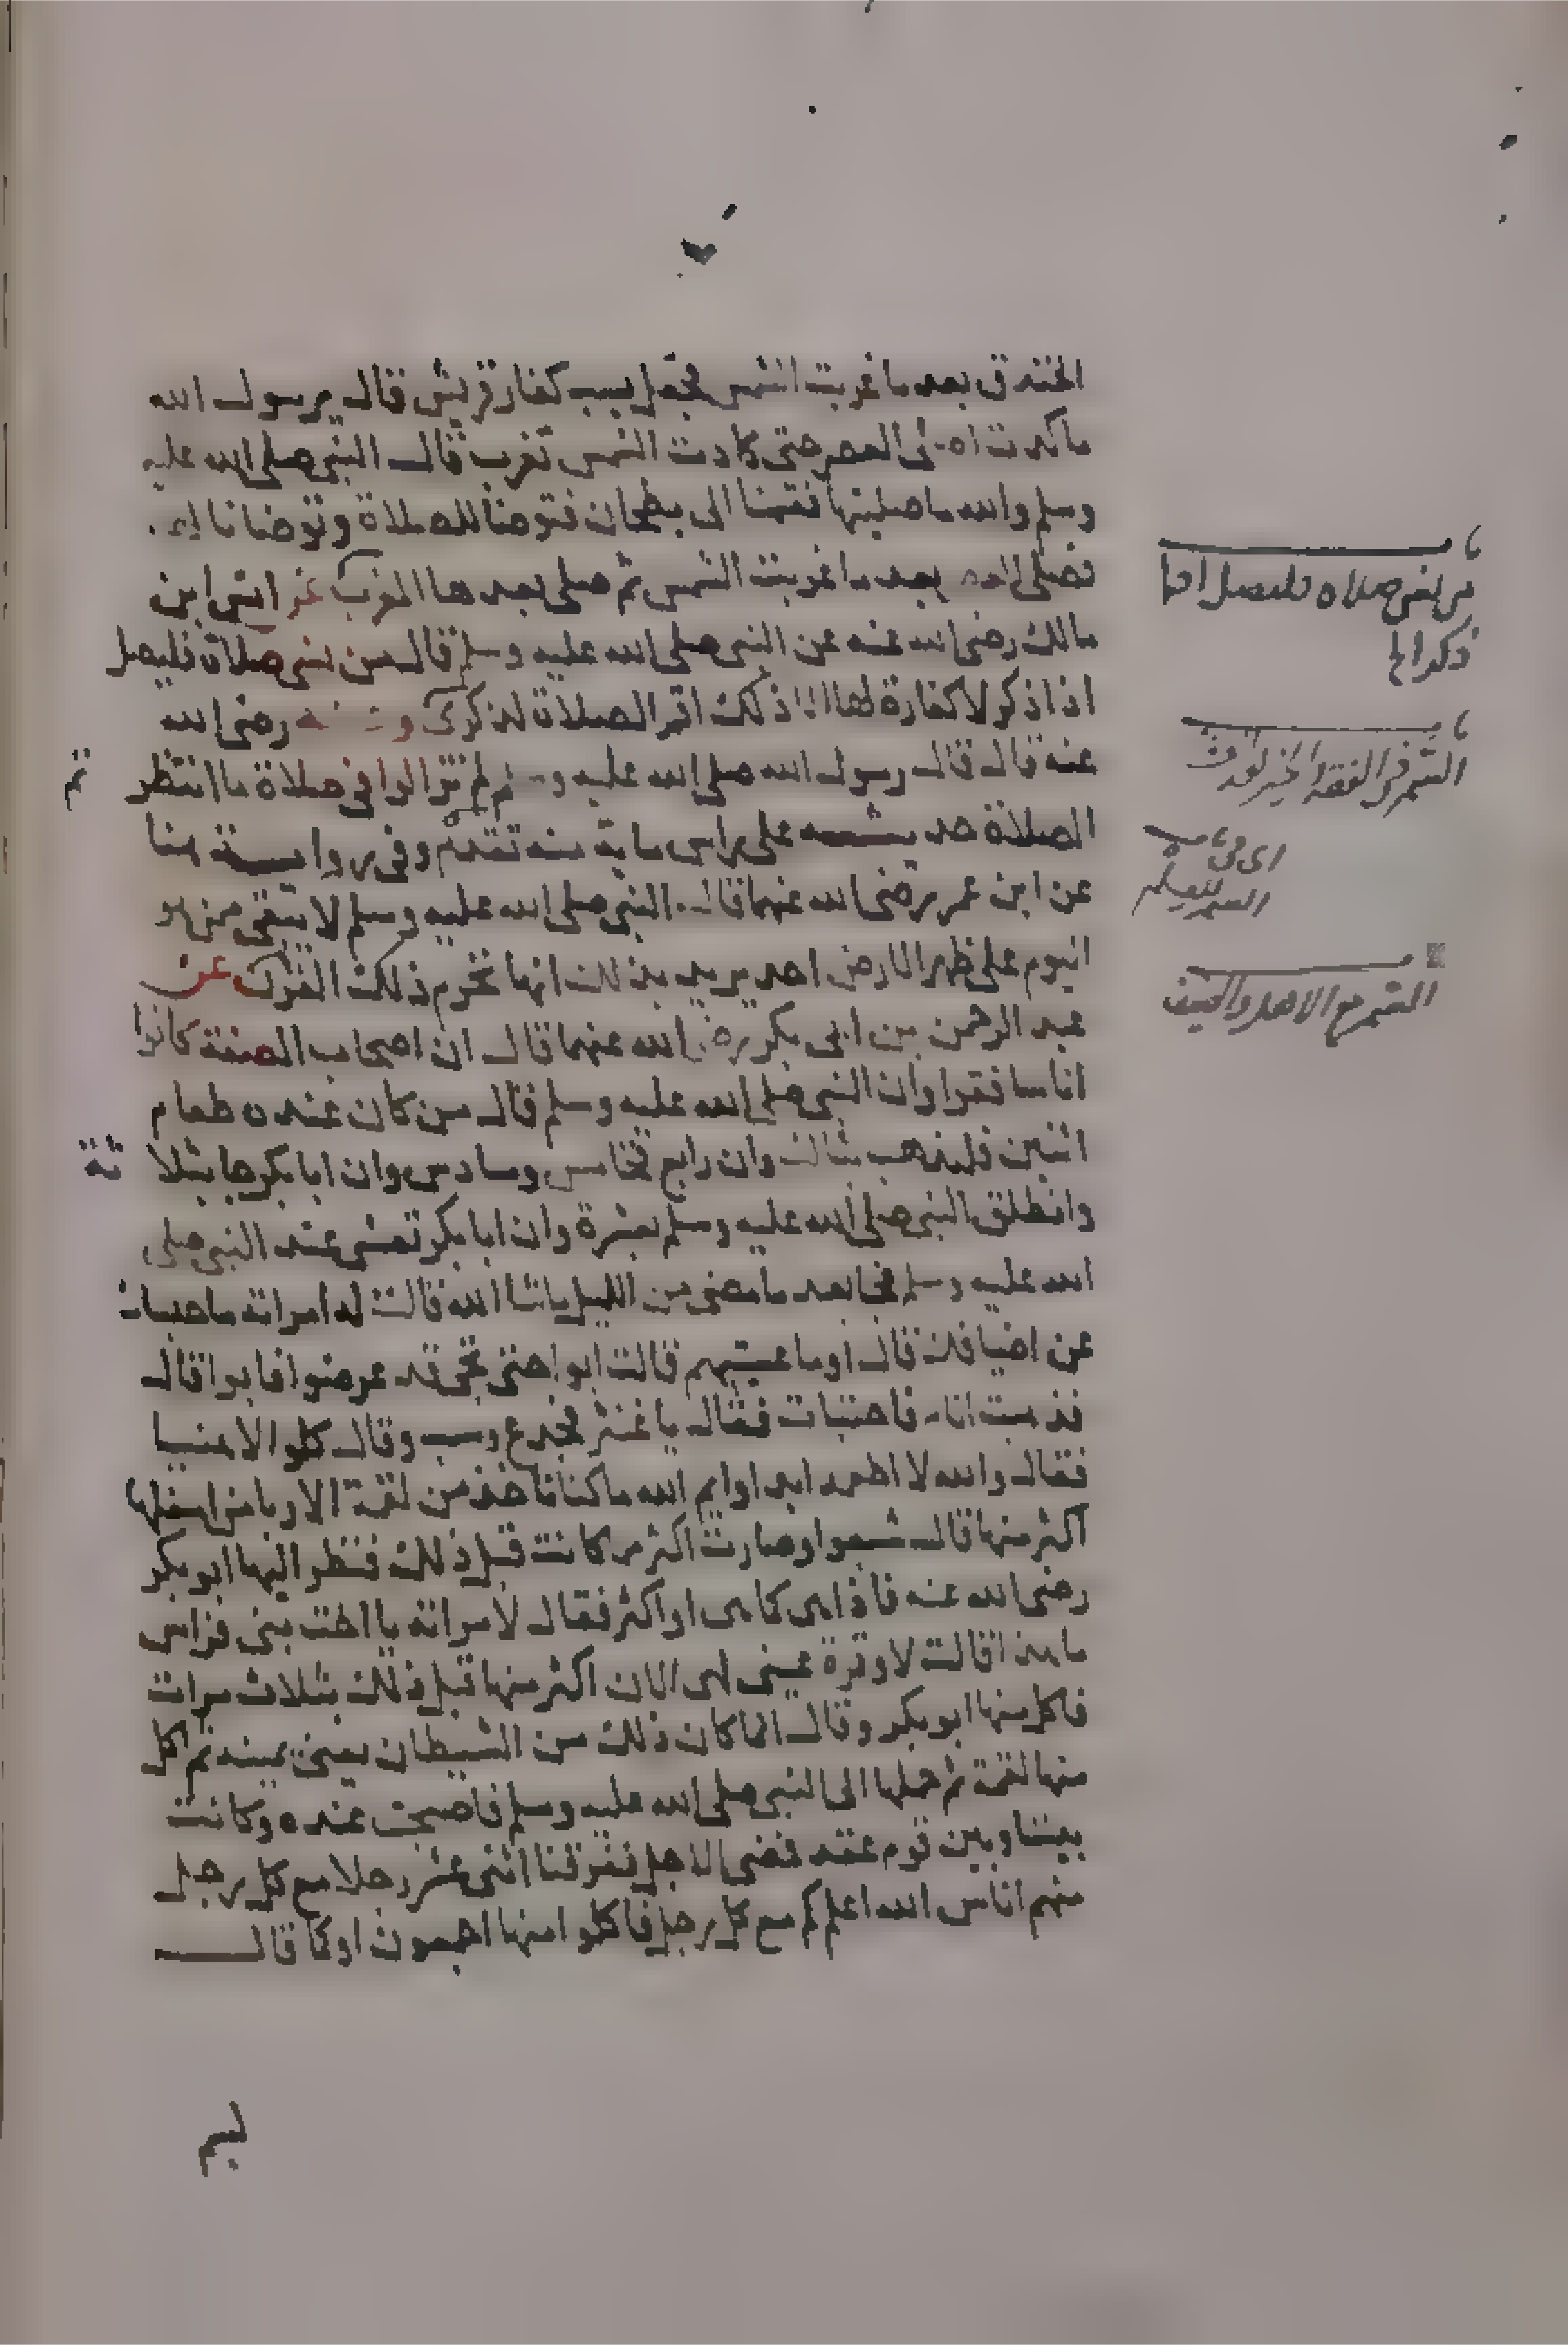 الخندق بعد ما غربت الشمس فجعل يسب كفار قريش قال يرسول الله
ماكدت اصلى العصر حتى كادت الشمس تغرب قال النبى صلى الله عليه
وسلم والله ما صليتها فقمنا الى بطحان فتوضا للصلاة وتوضانا لها
فصلى العصر بعد ما غربت الشمس ثم صلى بعدها المغرب عن انس ابن
مالك رضى الله عنه عن النبى صلى الله عليه وسلم قال من نسى صلاة فليصل
اذا ذكر لا كفارة لها الا ذلك اقم الصلاة لذكرى وعنه رضى الله
عنه قال قال رسول الله صلى الله عليه وسلم لم تزالوا فى صلاة ما انتظر
تم
الصلاة حديث على راس ماية سنة تقدم وفى رواية هنا
عن ابن عمر رضى الله عنهما قال النبى صلى الله عليه وسلم لا يبقى ممن هو
اليوم على ظهر الارض احد يريد بذلك انها تخرم ذلك القرن عن
عبد الرحمن بن ابى بكر رضى الله عنهما قال ان اصحاب الصفة كانوا
اناسا فقرا وان النبى صلى الله عليه وسلم قال من كان عنده طعام
اثنين فليذهب بثالث وان رابع فخامس وسادس وان ابا بكر جا بثلا
ثة
وانطلق النبى صلى الله عليه وسلم بعشرة وان ابا بكر تعشى عند النبى صلى
الله عليه وسلم فجا بعد ما مضى من الليل ما شا الله قالت له امراته ما حبسك
عن اضيافك قال اوما عشيتهم قالت ابوا حتى تجى قد عرضوا فابوا قال
فذهبت انا فاختبات فقال يا غنثر فجدع وسب وقال كلوا لا هنيا
فقال والله لا اطعمه ابدا وايم الله ما كنا ناخذ من لقمة الا ربا من اسفلها
اكثر منها قال شبعوا وصارت اكثر مما كانت قبل ذلك فنظر اليها ابو بكر
رضى الله عنه فاذا هى كما هى او اكثر فقال لامراته يا اخت بنى فراس
ما هذا قالت لا وقرة عينى لهى الان اكثر منها قبل ذلك بثلاث مرات
فاكل منها ابو بكر وقال انما كان ذلك من الشيطان يعنى يمينه ثم اكل
منها لقمة ثم حملها الى النبى صلى الله عليه وسلم فاصبحت عنده وكانت
بيننا وبين قوم عقد فمضى الاجل ففرقنا اثنى عشر رجلا مع كل رجل
منهم اناس الله اعلم كم مع كل رجل فاكلوا منها اجمعون او كما قال
من نسى صلاة فليصل اذا
ذكر الخ
السمر فى الفقه والخير
السمر مع الاهل والضيف